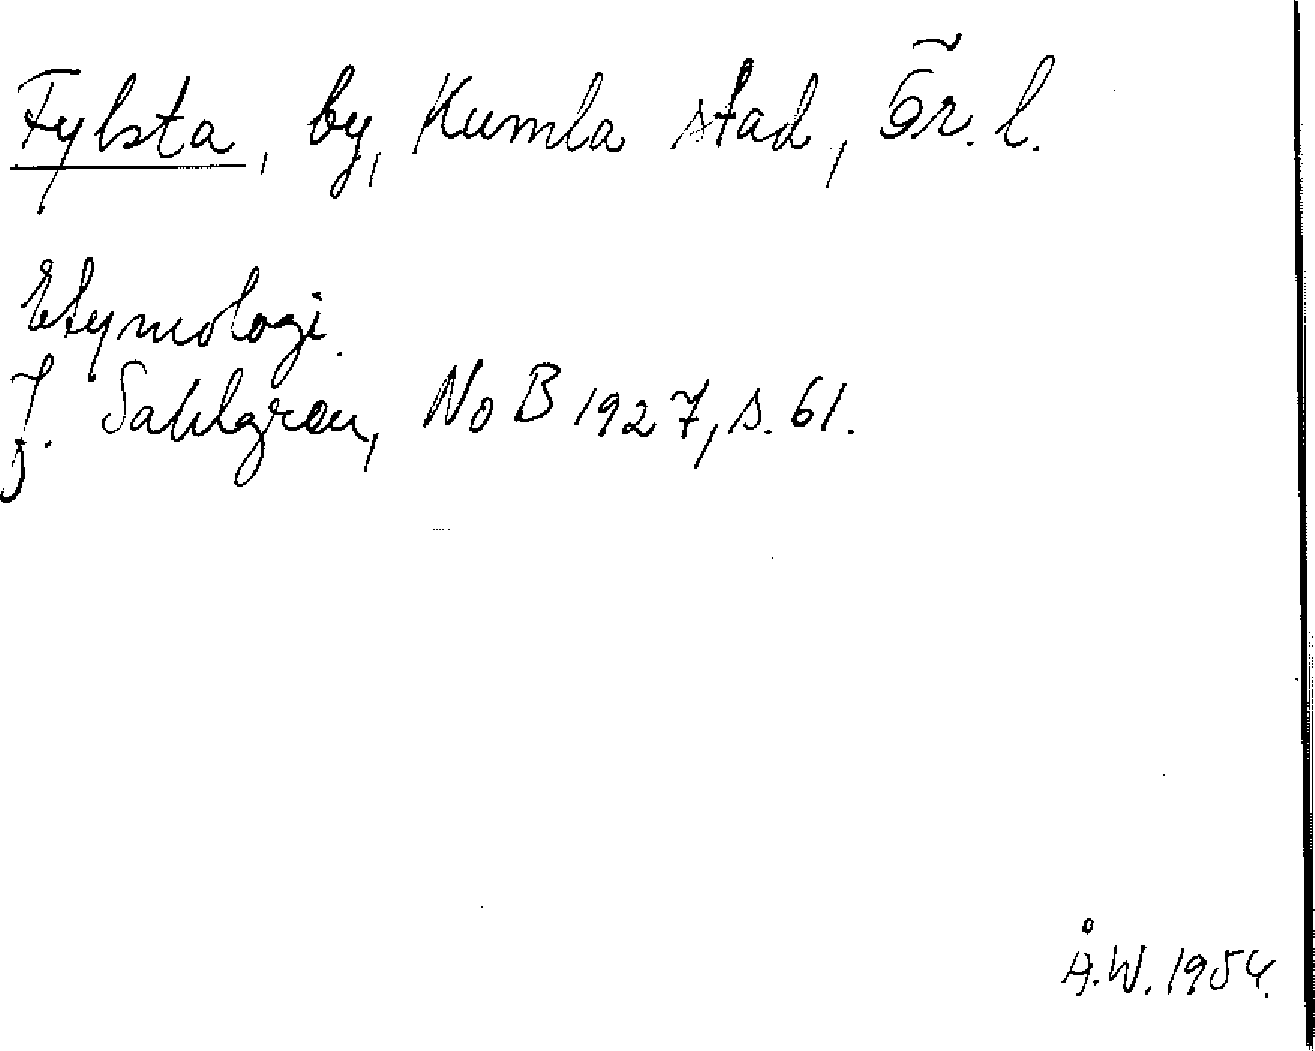 Fylsta, by, Kumla stad, Ör. l.
Etymologi.
J. Sahlgren, NoB 1927, s. 61.
Å.W. 1954.